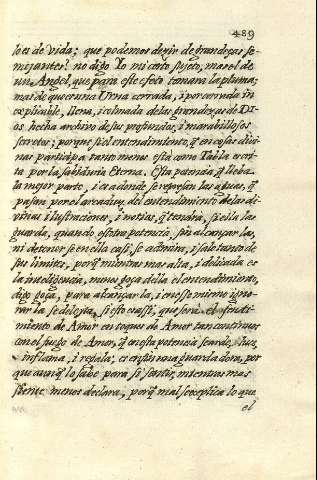 489
lo es de vida; que podemos dezir de grandezas se-
mejantes? no digo Yo mi corto sujeto, mas el de
un Angel, que para este efeto tomara la pluma;
mas de que era una Urna cerrada, i por cerrada in
explicable, llena, i colmada de las grandezas de Di-
os, hecha archivo de sus profundos, i marabillosos
secretos; porque si el entendimiento, q̃ en cosas divi
nas participa tanto menos està como Tabla escri-
ta por la sabiduria Eterna. Esta potencia q̃ lleba
la mejor parte, i es adonde se represan las aguas, q̃
pasan por el arcaduz del entendimiento de las di-
vinas ilustraciones, i noticias, q̃ tendrà, si ella las
guarda, quando esotra potencia sin alcançarlas,
ni detenerse en ellas casi, se admira, i sale tanto de
sus limites, porq̃ mientras mas alta, i delicada es
la inteligencia, menos goça della el entendimiento,
digo goça, para alcançarla, i en eso mismo igno-
rarla se deleyta, si esto es asi, que serà el rendi-
miento de Amor en toques de Amor tan continuos
con el fuego de Amor, q̃ en esta potencia se arde, luze,
inflama, i regala; es en fin una guarda dora, por
que aunq̃ lo sabe para si sentir, mientras mas
siente menos declara, porq̃ mal se explica lo que
el